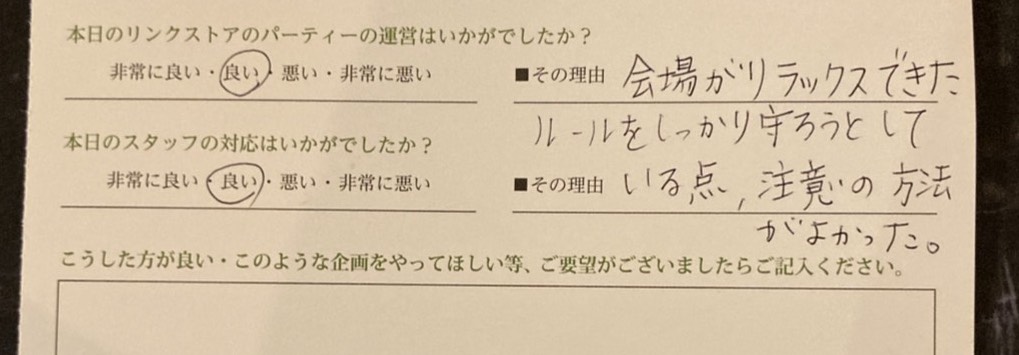 本日のリンクストアのパーティーの運営はいかがでしたか？
非常に良い・良い・悪い・非常に悪い
■その理由 会場がリラックスできた
本日のスタッフの対応はいかがでしたか？
ルールをしっかり守ろうとして
非常に良い・良い・悪い・非常に悪い
■その理由 いる点,注意の方法
がよかった。
こうした方が良い・このような企画をやってほしい等、ご要望がございましたらご記入ください。